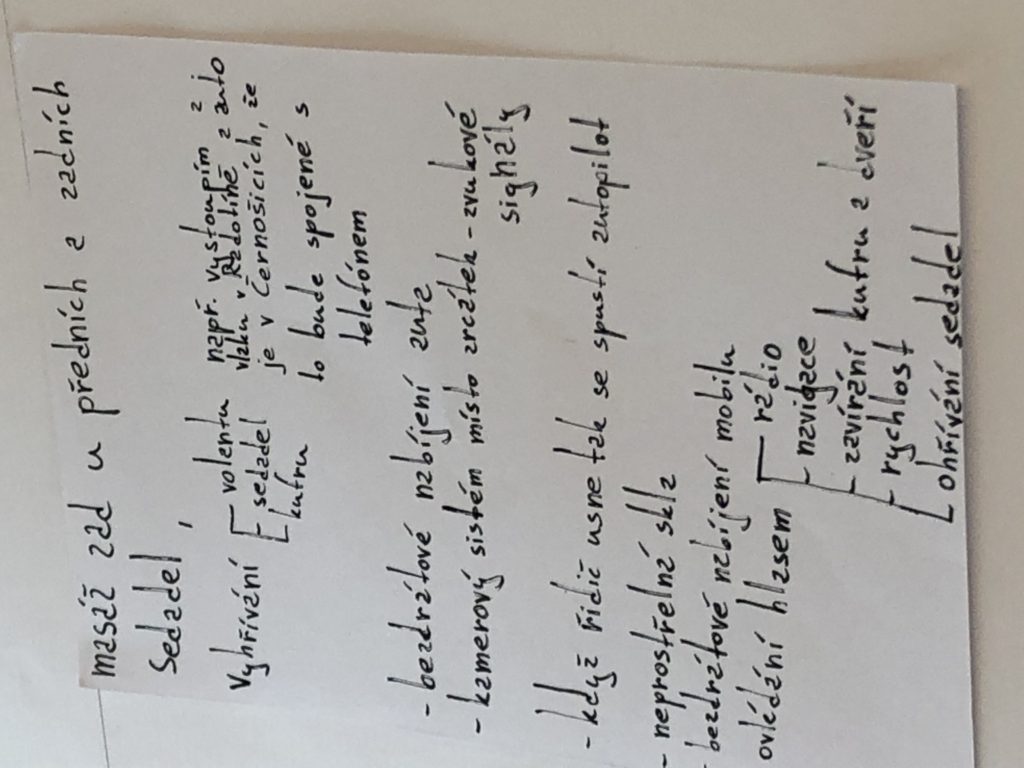 masáž zad u předních a zadních
sedadel,
Vyhřívání volantu
sedadel
kufru
např. vystoupím z
vlaku v Radotíně a auto
je v Černošicích, že
to bude spojené s
telefónem
- bezdrátové nabíjení auta
- kamerový sistém místo zrcátek - zvukové
signály
- když řidič usne tak se spustí autopilot
- neprostřelná skla
- bezdrátové nabíjení mobilu
ovládání hlasem rádio
navigace
zavírání kufru a dveří
rychlost
ohřívání sedadel